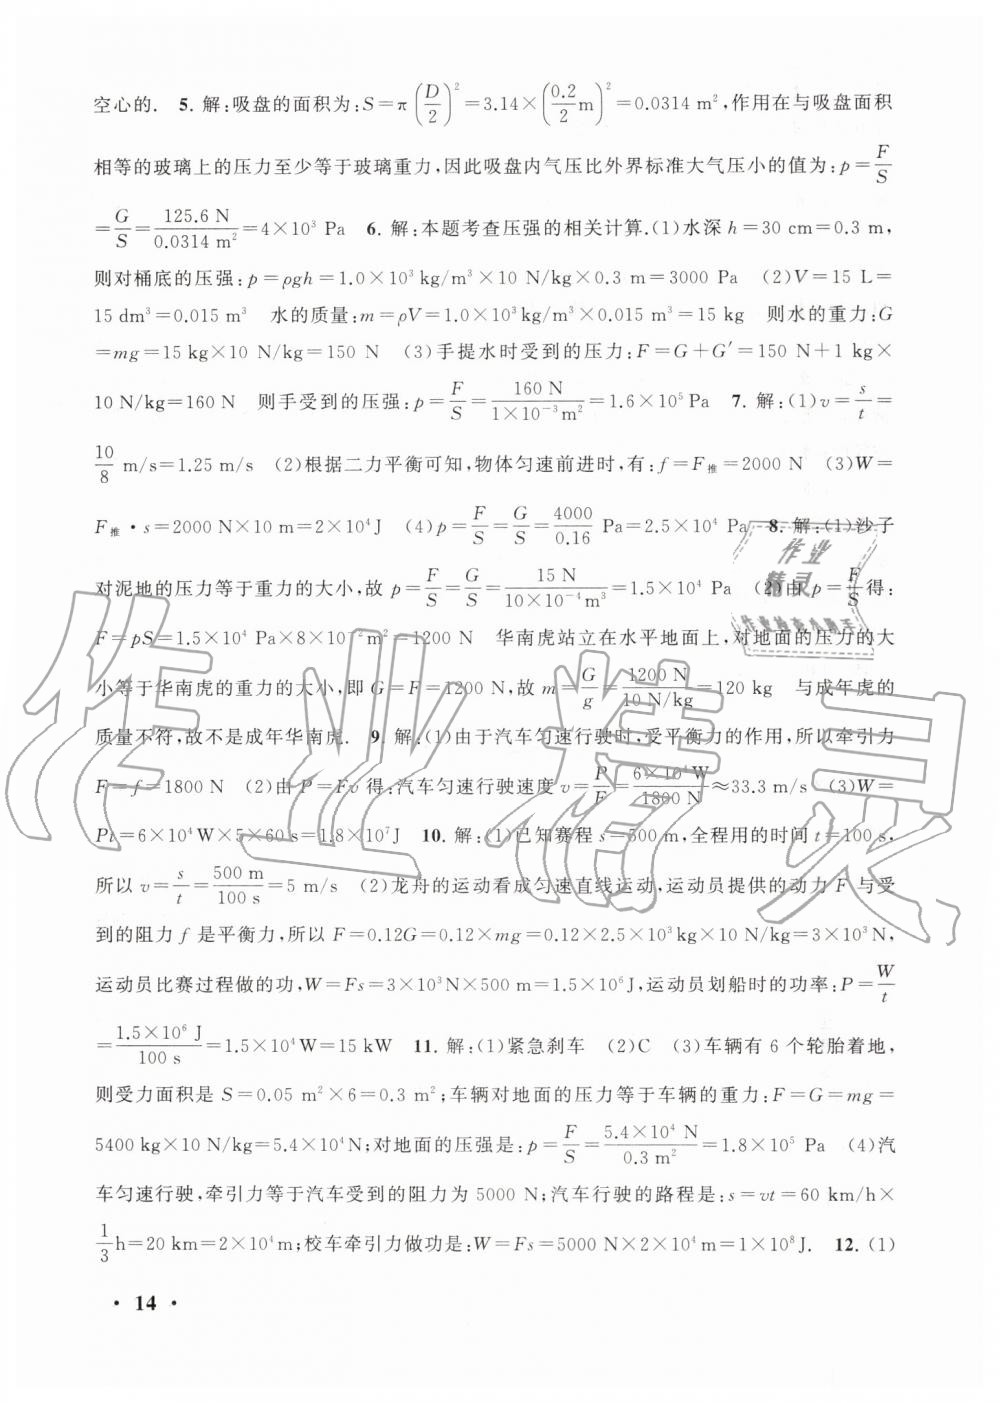 空心的. 5. 解:吸盘的面积为:S=π(D/2)²=3.14×(0.2/2 m)²=0.0314 m²,作用在与吸盘面积
相等的玻璃上的压力至少等于玻璃重力,因此吸盘内气压比外界标准大气压小的值为:p=F/S
=G/S=125.6 N/0.0314 m²=4×10³ Pa 6. 解:本题考查压强的相关计算.(1)水深h=30 cm=0.3 m,
则对桶底的压强:p=ρgh=1.0×10³ kg/m³×10 N/kg×0.3 m=3000 Pa (2)V=15 L=
15 dm³=0.015 m³ 水的质量:m=ρV=1.0×10³kg/m³×0.015 m³=15 kg 则水的重力:G
=mg=15 kg×10 N/kg=150 N (3)手提水时受到的压力:F=G+G′=150 N+1 kg×
10 N/kg=160 N 则手受到的压强:p=F/S=160 N/1×10⁻³m²=1.6×10⁵Pa 7. 解:(1)v=s/t=
10/8 m/s=1.25 m/s (2)根据二力平衡可知,物体匀速前进时,有:f=F推=2000 N (3)W=
F推·s=2000 N×10 m=2×10⁴J (4)p=F/S=G/S=4000/0.16 Pa=2.5×10⁴ Pa 8. 解:(1)沙子
对泥地的压力等于重力的大小,故 p=F/S=G/S=15 N/10×10⁻⁴m³=1.5×10⁴ Pa (2)由 p=F/S得:
F=pS=1.5×10⁴ Pa×8×10⁻²m²=1200 N 华南虎站立在水平地面上,对地面的压力的大
小等于华南虎的重力的大小,即 G=F=1200 N,故 m=G/g=1200 N/10 N/kg=120 kg 与成年虎的
质量不符,故不是成年华南虎. 9. 解:(1)由于汽车匀速行驶时,受平衡力的作用,所以牵引力
F=f=1800 N (2)由 P=Fv 得:汽车匀速行驶速度 v=P/F=6×10⁴W/1800 N≈33.3 m/s (3)W=
Pt=6×10⁴W×5×60 s=1.8×10⁷J 10. 解:(1)已知赛程 s=500 m,全程用的时间 t=100 s,
所以 v=s/t=500 m/100 s=5 m/s (2)龙舟的运动看成匀速直线运动,运动员提供的动力 F 与受
到的阻力 f 是平衡力,所以 F=0.12G=0.12×mg=0.12×2.5×10³kg×10 N/kg=3×10³N,
运动员比赛过程做的功,W=Fs=3×10³N×500 m=1.5×10⁶J,运动员划船时的功率:P=W/t
=1.5×10⁶ J/100 s=1.5×10⁴W=15 kW 11. 解:(1)紧急刹车 (2)C (3)车辆有 6 个轮胎着地,
则受力面积是 S=0.05 m²×6=0.3 m²;车辆对地面的压力等于车辆的重力:F=G=mg=
5400 kg×10 N/kg=5.4×10⁴N;对地面的压强是:p=F/S=5.4×10⁴ N/0.3 m²=1.8×10⁵ Pa (4)汽
车匀速行驶,牵引力等于汽车受到的阻力为 5000 N;汽车行驶的路程是:s=vt=60 km/h×
1/3 h=20 km=2×10⁴m;校车牵引力做功是:W=Fs=5000 N×2×10⁴m=1×10⁸J. 12. (1)
· 14 ·
作业精灵
作业
精灵